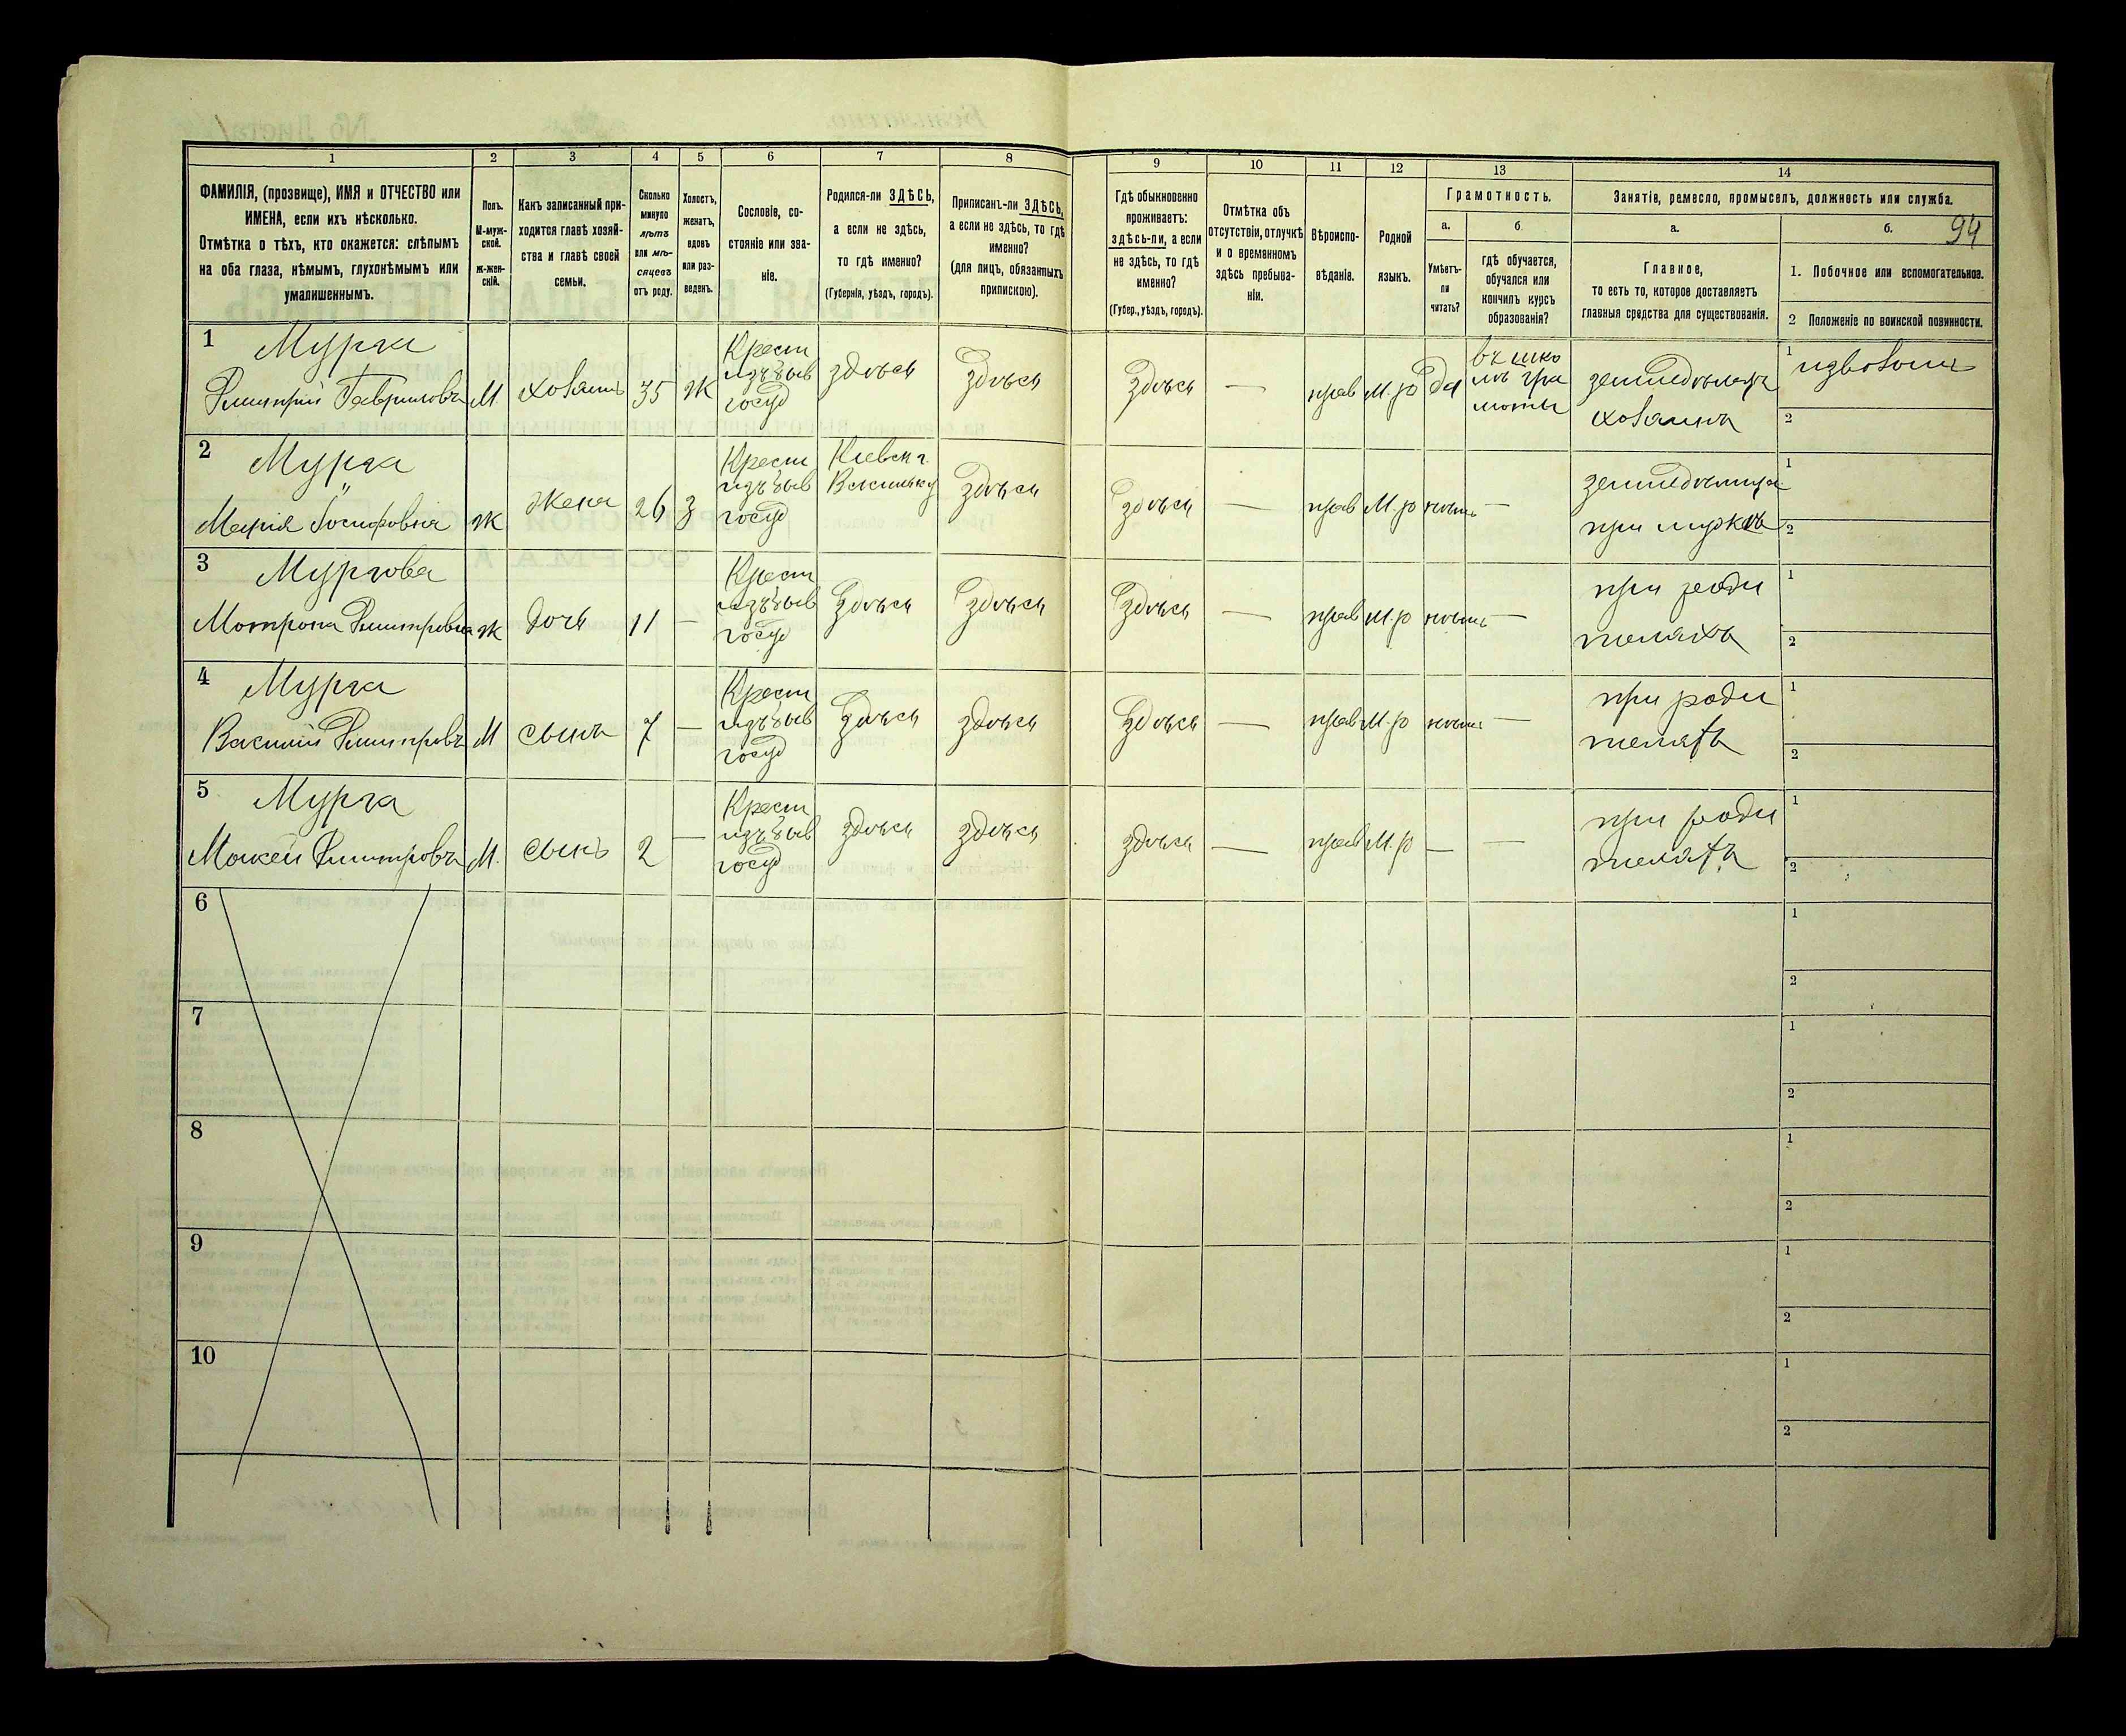 1 2 3 4 5 6 7 8 9 10 11 12 13 14
ФАМИЛІЯ, (прозвище), ИМЯ и ОТЧЕСТВО или
ИМЕНА, если ихъ нѣсколько.
Отмѣтка о тѣхъ, кто окажется: слѣпымъ
на оба глаза, нѣмымъ, глухонѣмымъ или
умалишеннымъ.
Полъ.
М-муж-
ской.
Ж-жен-
скій.
Какъ записанный при-
ходится главѣ хозяй-
ства и главѣ своей
семьи.
Сколько
минуло
лѣтъ
или мѣ-
сяцевъ
отъ роду.
Холостъ,
женатъ,
вдовъ
или раз-
веденъ.
Сословіе, со-
стояніе или зва-
ніе.
Родился-ли ЗДѢСЬ,
а если не здѣсь,
то гдѣ именно?
(Губернія, уѣздъ, городъ).
Приписанъ-ли ЗДѢСЬ,
а если не здѣсь, то гдѣ
именно?
(для лицъ, обязанныхъ
припискою).
Гдѣ обыкновенно
проживаетъ:
здѣсь-ли, а если
не здѣсь, то гдѣ
именно?
(Губер., уѣздъ, городъ).
Отмѣтка объ
отсутствіи, отлучкѣ
и о временномъ
здѣсь пребыва-
ніи.
Вѣроиспо-
вѣданіе.
Родной
языкъ.
Грамотность.
а.
Умѣетъ-
ли
читать?
б.
гдѣ обучается,
обучался или
кончилъ курсъ
образованія?
Занятіе, ремесло, промыселъ, должность или служба.
а.
Главное,
то есть то, которое доставляетъ
главныя средства для существованія.
б.
94
1. Побочное или вспомогательное.
2 Положеніе по воинской повинности.
1
Мурга
Дмитрій Гавриловъ
М.
хозяинъ
35
Ж
Крест
изъ быв
госуд
здѣсь
здѣсь
здѣсь
—
прав
М. р
да
въ шко
лѣ гра
моты
земледѣлецъ
хозяинъ
1 извозомъ
2
2
Мурга
Марія Іосифовна
Ж
жена
26
З
Крест
изъ быв
госуд
Кіевск г.
здѣсь
здѣсь
—
прав
М. р
нѣтъ
—
при мужѣ
1
2
3
Мургова
Мотрона Дмитровна
ж
дочь
11
—
Крест
изъ быв
госуд
здѣсь
здѣсь
здѣсь
—
прав
М. р
нѣтъ
—
при роди
теляхъ
1
2
4
Мурга
Василій Дмитровъ
М
сынъ
7
—
Крест
изъ быв
госуд
здѣсь
здѣсь
здѣсь
—
прав
М. р
нѣтъ
—
при роди
теляхъ
1
2
5
Мурга
Моисей Дмитровъ
М.
сынъ
2
—
Крест
изъ быв
госуд
здѣсь
здѣсь
здѣсь
—
прав
М. р
—
—
при роди
теляхъ
1
2
6
1
2
7
1
2
8
1
2
9
1
2
10
1
2